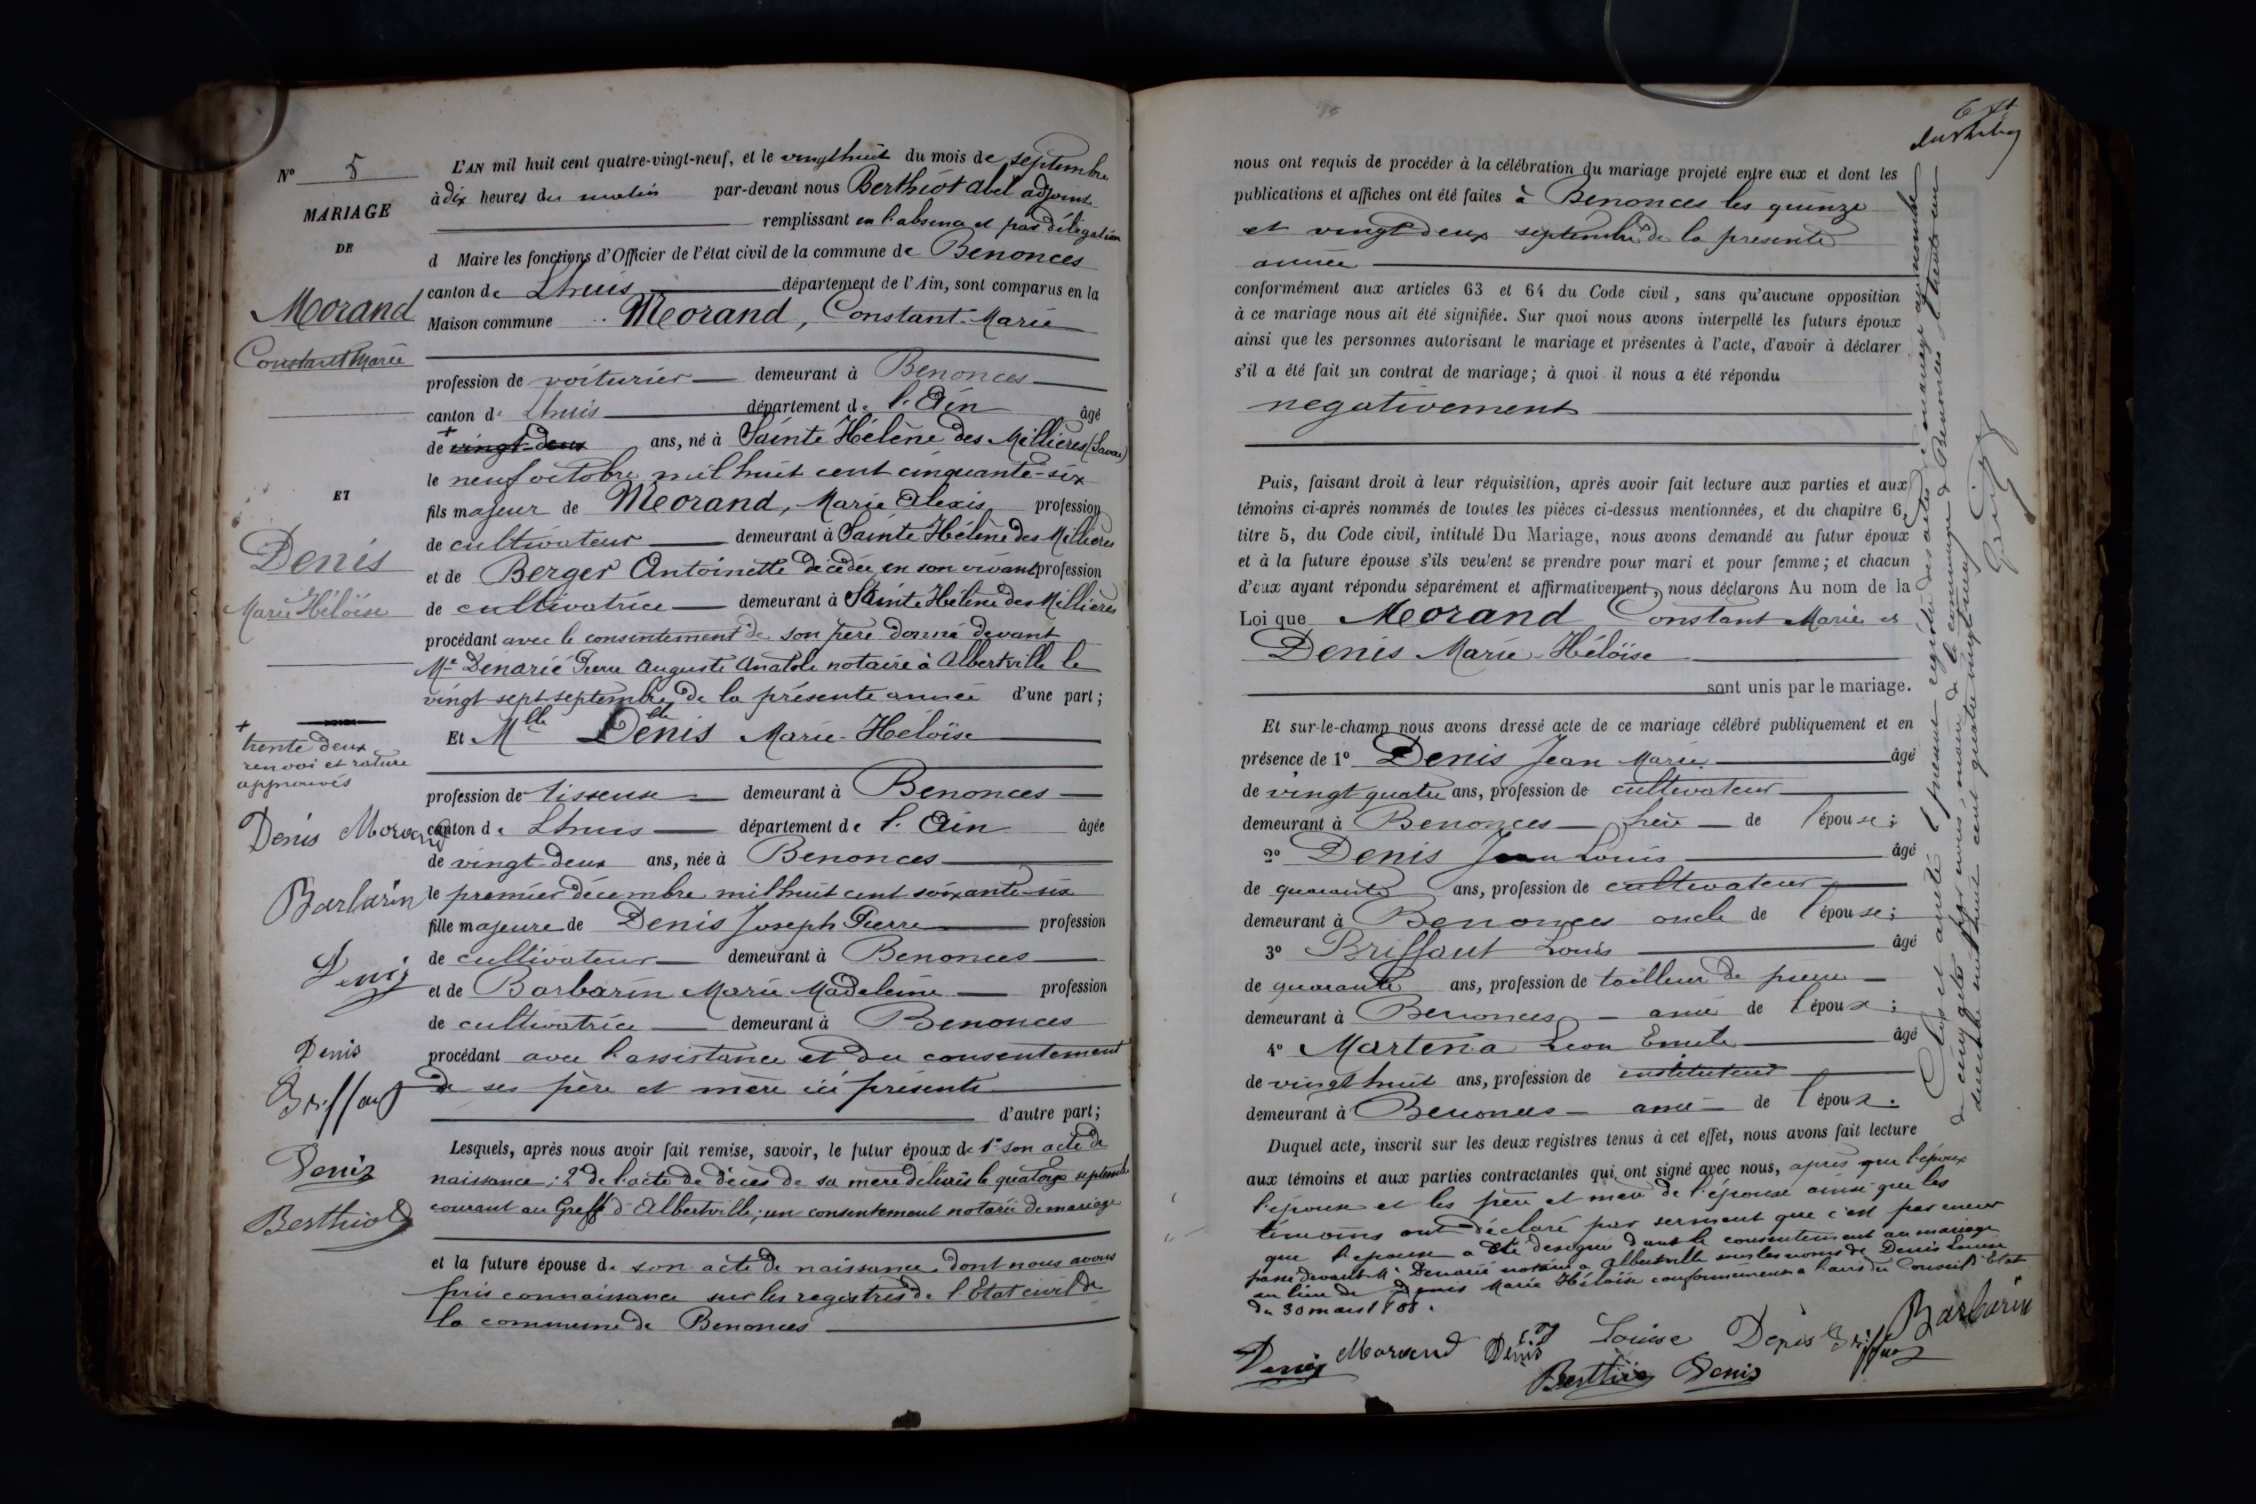 N° 5
MARIAGE
DE
Morand
Constant Marie
ET
Denis
Marie Héloïse
+
trente deux
renvoi et rature
approuvés
Denis Morand
Barbarin
Denis
Denis
Briffaut
Denis
Berthiot
L'AN mil huit cent quatre-vingt-neuf, et le vingt huit du mois de septembre
à dix heures du matin par-devant nous Berthiot Abel adjoint
remplissant en l'absence et par délégation
d Maire les fonctions d'Officier de l'état civil de la commune de Benonces
canton de Lhuis département de l'Ain, sont comparus en la
Maison commune Morand, Constant-Marie
profession de voiturier demeurant à Benonces
canton de Lhuis département de l'Ain âgé
de + vingt-deux ans, né à Sainte Hélène des Millières (Savoie)
le neuf octobre mil huit cent cinquante-six
fils majeur de Morand, Marie Alexis profession
de cultivateur demeurant à Sainte Hélène des Millières
et de Berger Antoinette décédée en son vivant profession
de cultivatrice demeurant à Sainte Hélène des Millières
procédant avec le consentement de son père donné devant
Me Dénarié Pierre Auguste Anatole notaire à Albertville le
vingt sept septembre de la présente année d'une part;
Et Mlle Denis Marie-Héloïse
profession de tisseuse demeurant à Benonces
canton de Lhuis département de l'Ain âgée
de vingt-deux ans, née à Benonces
le premier décembre mil huit cent soixante-six
fille majeure de Denis Joseph Pierre profession
de cultivateur demeurant à Benonces
et de Barbarin Marie Madeleine profession
de cultivatrice demeurant à Benonces
procédant avec l'assistance et du consentement
de ses père et mère ici présents
d'autre part;
Lesquels, après nous avoir fait remise, savoir, le futur époux de 1° son acte de
naissance; 2° de l'acte de décès de sa mère délivrés le quatorze septembre
courant au Greffe d'Albertville; un consentement notarié de mariage
et la future épouse de son acte de naissance dont nous avons
pris connaissance sur les registres de l'Etat civil de
la commune de Benonces
nous ont requis de procéder à la célébration du mariage projeté entre eux et dont les
publications et affiches ont été faites à Benonces les quinze
et vingt deux septembre de la présente
année
conformément aux articles 63 et 64 du Code civil, sans qu'aucune opposition
à ce mariage nous ait été signifiée. Sur quoi nous avons interpellé les futurs époux
ainsi que les personnes autorisant le mariage et présentes à l'acte, d'avoir à déclarer
s'il a été fait un contrat de mariage; à quoi il nous a été répondu
negativement
Puis, faisant droit à leur réquisition, après avoir fait lecture aux parties et aux
témoins ci-après nommés de toutes les pièces ci-dessus mentionnées, et du chapitre 6,
titre 5, du Code civil, intitulé Du Mariage, nous avons demandé au futur époux
et à la future épouse s'ils veulent se prendre pour mari et pour femme; et chacun
d'eux ayant répondu séparément et affirmativement, nous déclarons Au nom de la
Loi que Morand Constant Marie et
Denis Marie-Héloïse
sont unis par le mariage.
Et sur-le-champ nous avons dressé acte de ce mariage célébré publiquement et en
présence de 1° Denis Jean Marie âgé
de vingt quatre ans, profession de cultivateur
demeurant à Benonces frère de l'épouse;
2° Denis Jean Louis âgé
de quarante ans, profession de cultivateur
demeurant à Benonces oncle de l'épouse;
3° Briffaut Louis âgé
de quarante ans, profession de tailleur de pierre
demeurant à Benonces ami de l'époux;
4° Martena Léon Emile âgé
de vingt huit ans, profession de instituteur
demeurant à Benonces ami de l'époux.
Duquel acte, inscrit sur les deux registres tenus à cet effet, nous avons fait lecture
aux témoins et aux parties contractantes qui ont signé avec nous, après que l'époux
l'épouse et les père et mère de l'épouse ainsi que les
témoins ont déclaré par serment que c'est par erreur
que l'épouse a été désignée dans le consentement au mariage
passé devant Me Dénarié notaire à Albertville sous les noms de Denis Louise
au lieu de Denis Marie Héloïse conformément à l'avis du Conseil d'Etat
du 30 mars 1808.
Denis Morand Denis Louise Denis Briffaut Barbarin
Berthiot Denis
Clos et arrêté le présent registre des actes de mariage au nombre
de cinq actes par nous maire de la commune de Benonces le trente un
décembre mil huit cent quatre vingt neuf